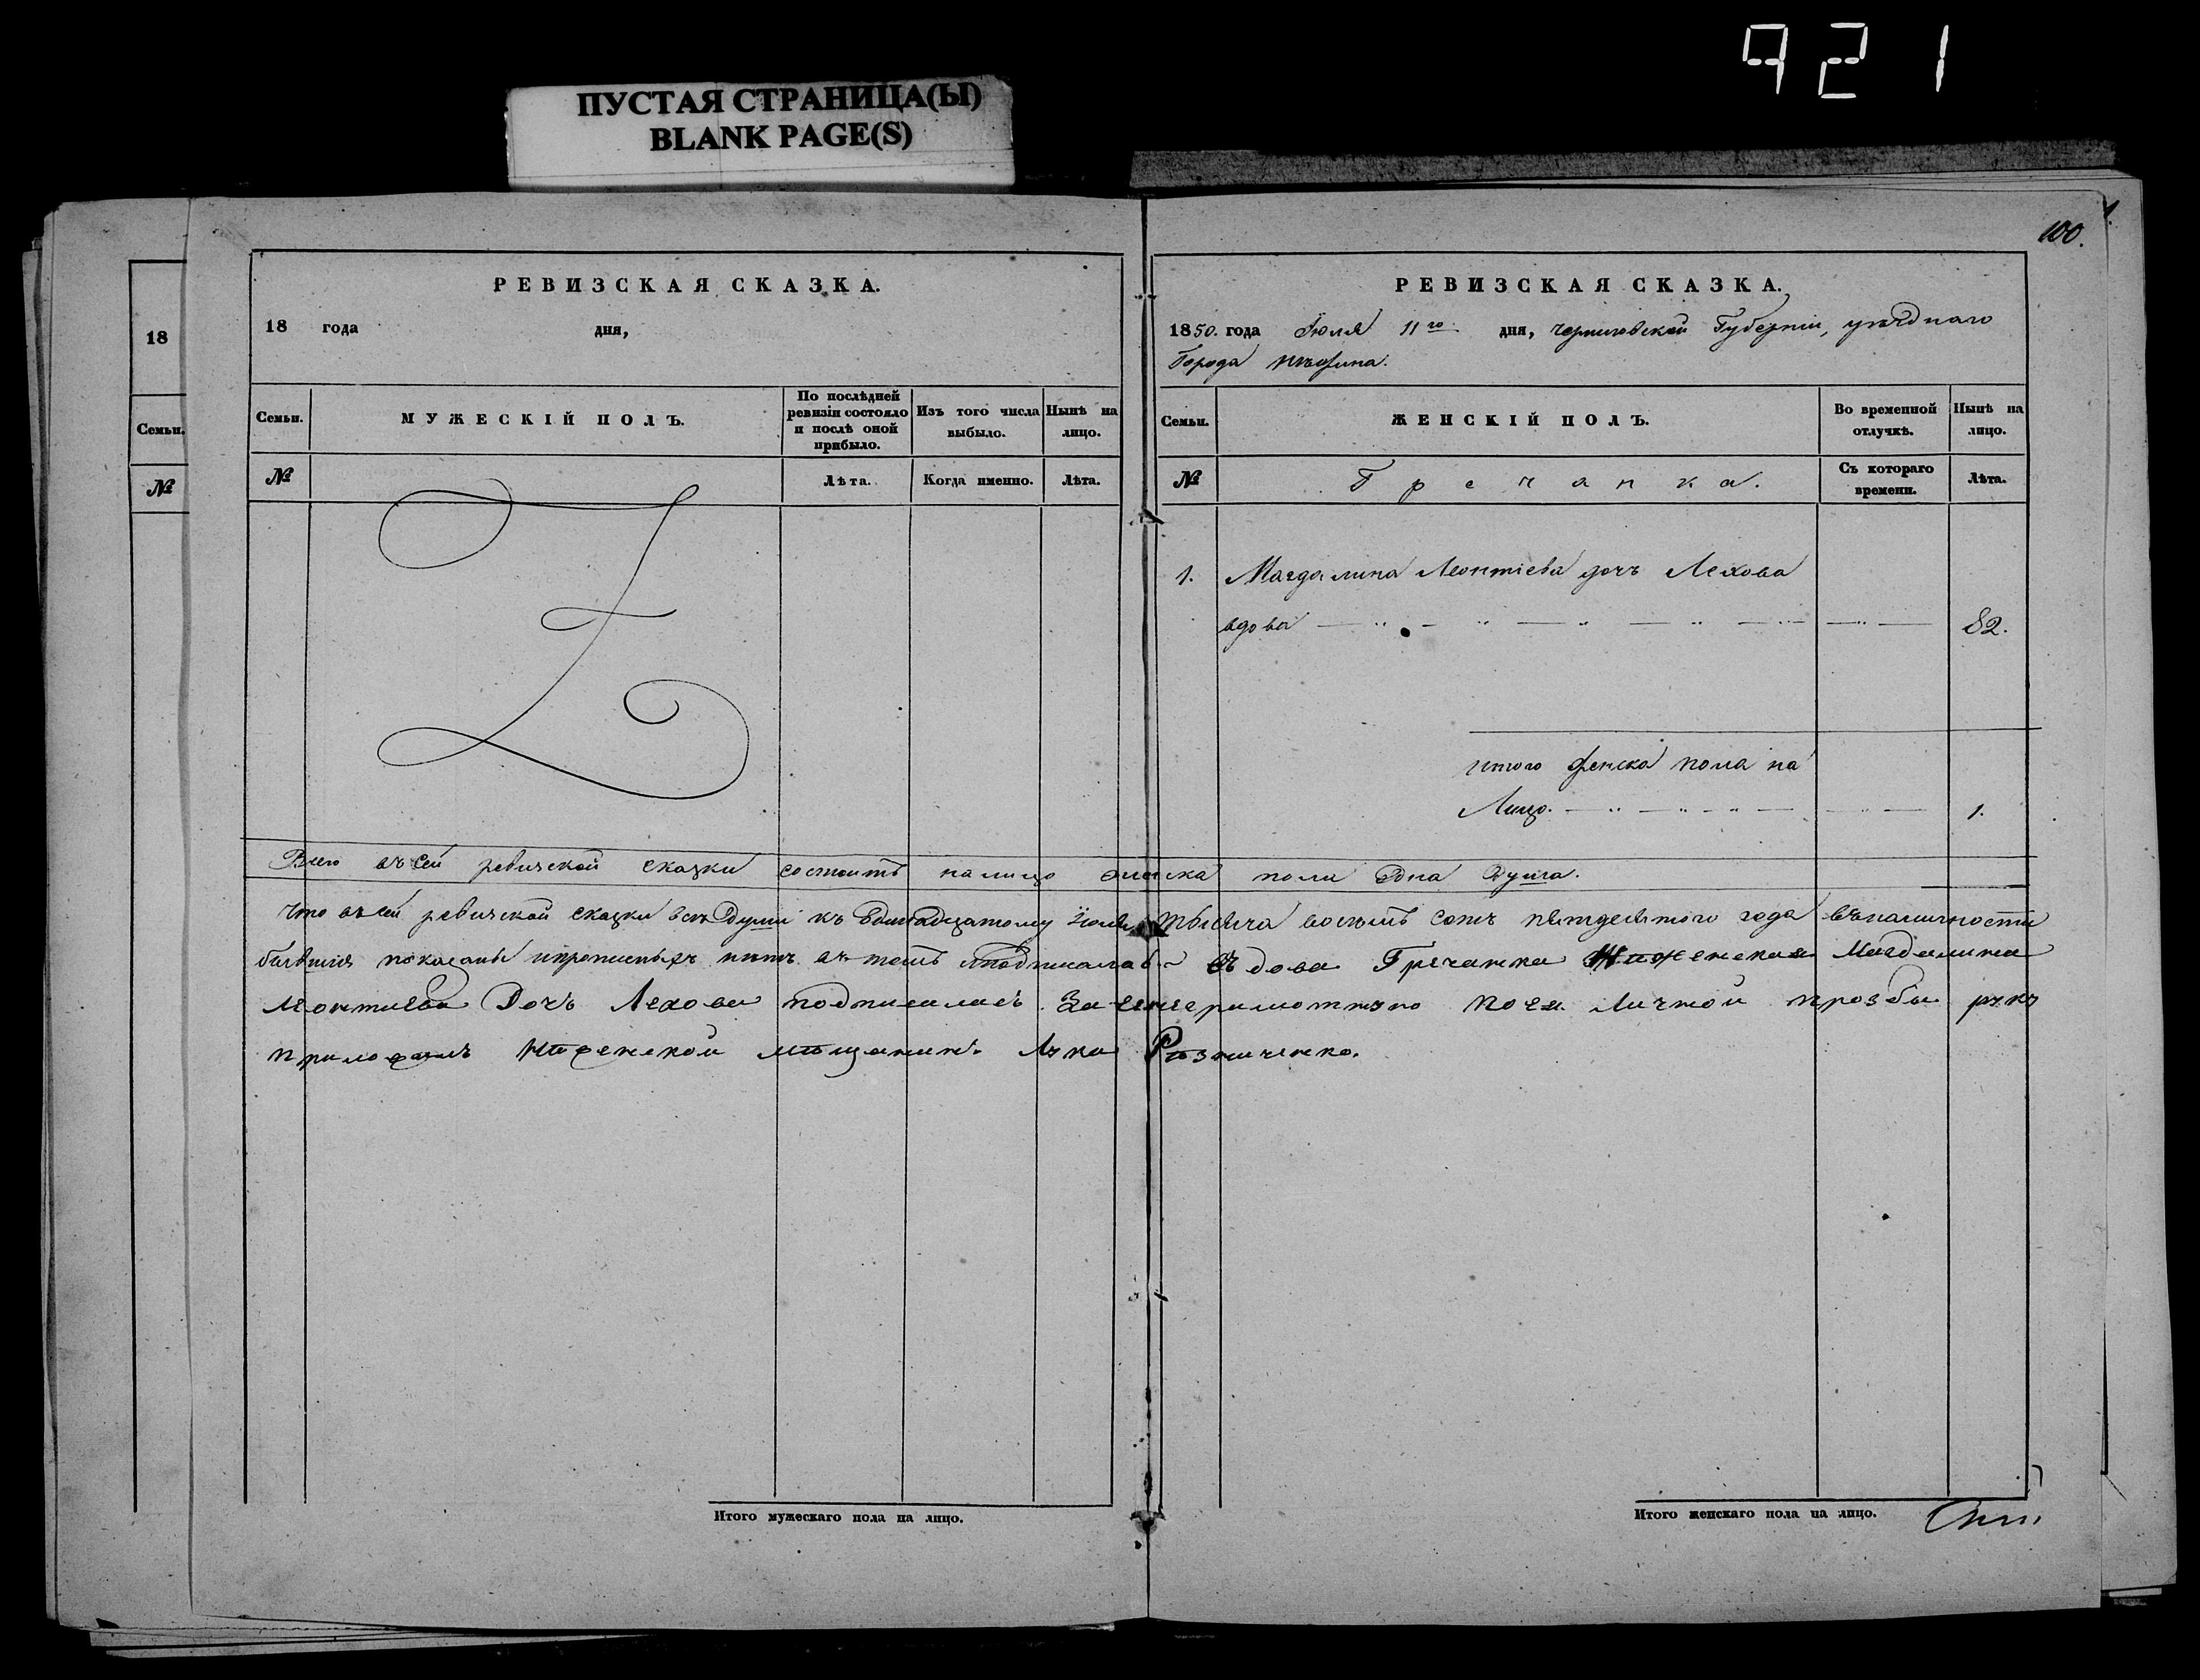 921
ПУСТАЯ СТРАНИЦА(Ы)
BLANK PAGE(S)
100.
18
Семьи.
№
РЕВИЗСКАЯ СКАЗКА.
18 года дня,
Семьи.
МУЖЕСКІЙ ПОЛЪ.
По послѣдней ревизіи состояло и послѣ оной прибыло.
Изъ того числа выбыло.
Нынѣ на лицо.
№
Лѣта.
Когда именно.
Лѣта.
РЕВИЗСКАЯ СКАЗКА.
1850. года Іюля 11го дня, Черниговской Губерніи, уѣзднаго
Города Нѣжина.
Семьи.
ЖЕНСКІЙ ПОЛЪ.
Во временной отлучкѣ.
Нынѣ на лицо.
№
Гречанка.
Съ котораго времени.
Лѣта.
1. Магдалина Леонтіева дочь Лехова
вдова 82.
итого женска пола на
Лицо. 1.
Всего въ сей ревизской сказки состоитъ налицо женска пола Одна Душа.
Что въ сей ревизской сказки всѣ Души къ Одинадцатому Іюля тысяча восемь сотъ пятдесятого года въ наличности
бывшия показаны и прописныхъ нѣтъ въ томъ подписалась вдова Гречанка Нѣженская Магдалина
Леонтиева Дочь Лехова подписалась. За неграмотную по ея Личной прозбы руку
приложилъ Нѣженской мѣщанинъ Лука Рѣзниченко.
Итого мужескаго пола на лицо.
Итого женскаго пола на лицо.